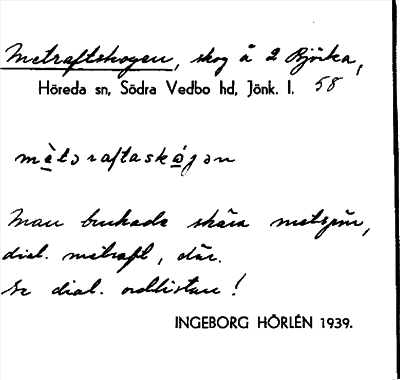 Metraftskogen, skog å 2 Björka,
Höreda sn, Södra Vedbo hd, Jönk. l. 58
mètəraftaskó̱gən
Man brukade skära metspön,
dial. metraft, där.
Se dial. ordlistan!
INGEBORG HÖRLÉN 1939.